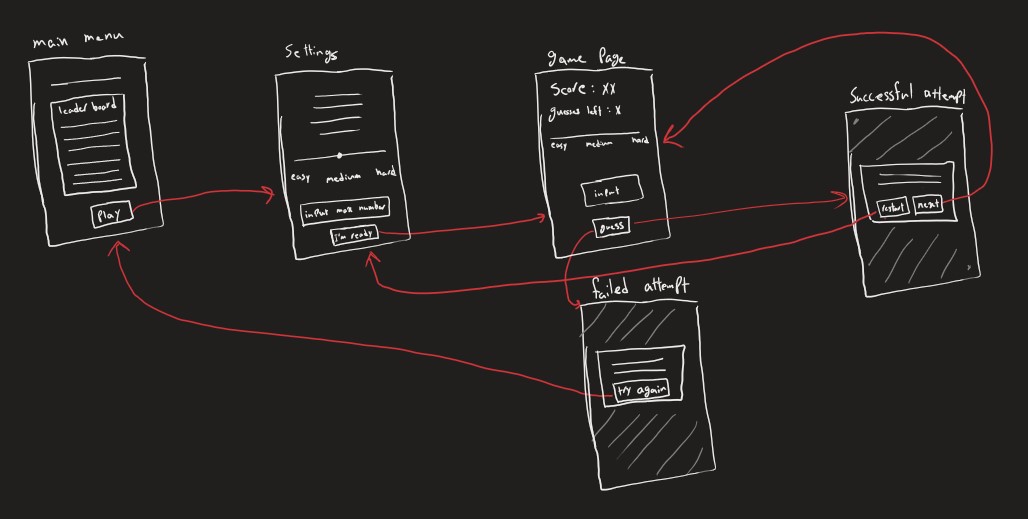 main menu
leader board
play
Settings
easy medium hard
input max number
I'm ready
game Page
Score : XX
guesses left : X
easy medium hard
input
guess
Successful attempt
restart next
failed attempt
try again